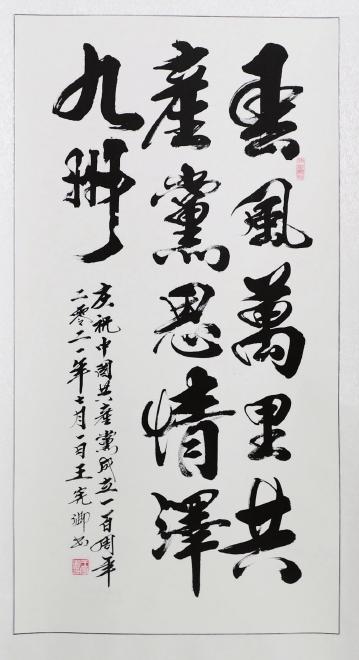 春風萬里共
產黨恩情澤
九州
庆祝中國共產黨成立一百周年
二零二一年七月一日王宪卿书